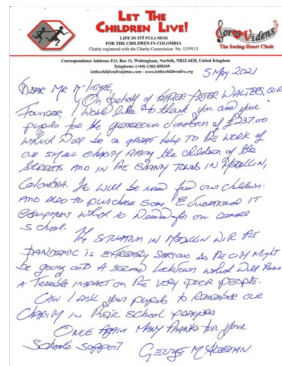 LET THE
CHILDREN LIVE!
LIFE IN ITS FULLNESS
FOR THE CHILDREN IN COLOMBIA
Charity registered with the Charity Commission No. 1159113
Cor Videns
The Seeing-Heart Choir
Correspondence Address: P.O. Box 11, Walsingham, Norfolk, NR22 6EH, United Kingdom
5 May 2021
Dear Mr
On behalf of Father Peter Walters our
Founder, I would like to thank you and your
pupils for the generous donation of £237.00
which will be a great help to the work of
our small charity among the children of the
streets and in the shanty towns in Medellin,
Colombia. It will be used feed our children
and also to purchase some Educational IT
equipment which is needed for our
school.
The situation in Medellin with the
Pandemic is extremely serious as the city might
be going into a second lockdown which will have
a terrible impact on the very poor people.
Can I ask your pupils to remember our
Charity in their school prayers
Once again many thanks for your
Schools support
George